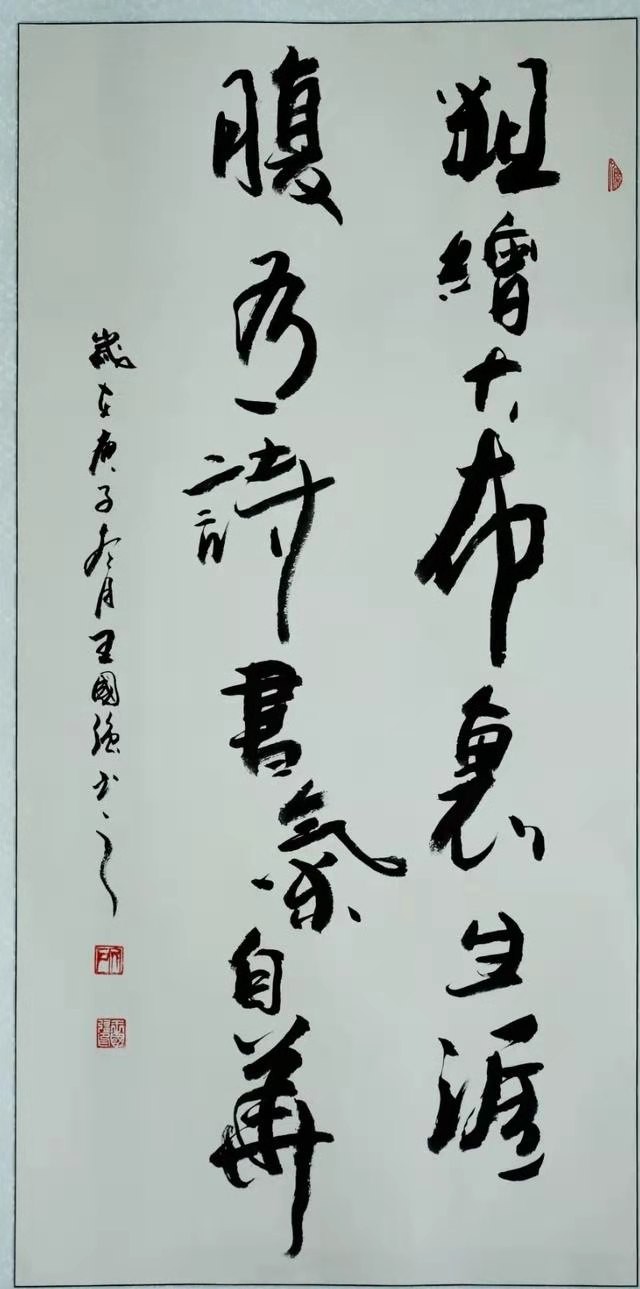 粗繒大布裹生涯
腹有詩書氣自華
歲在庚子冬月王國強書之